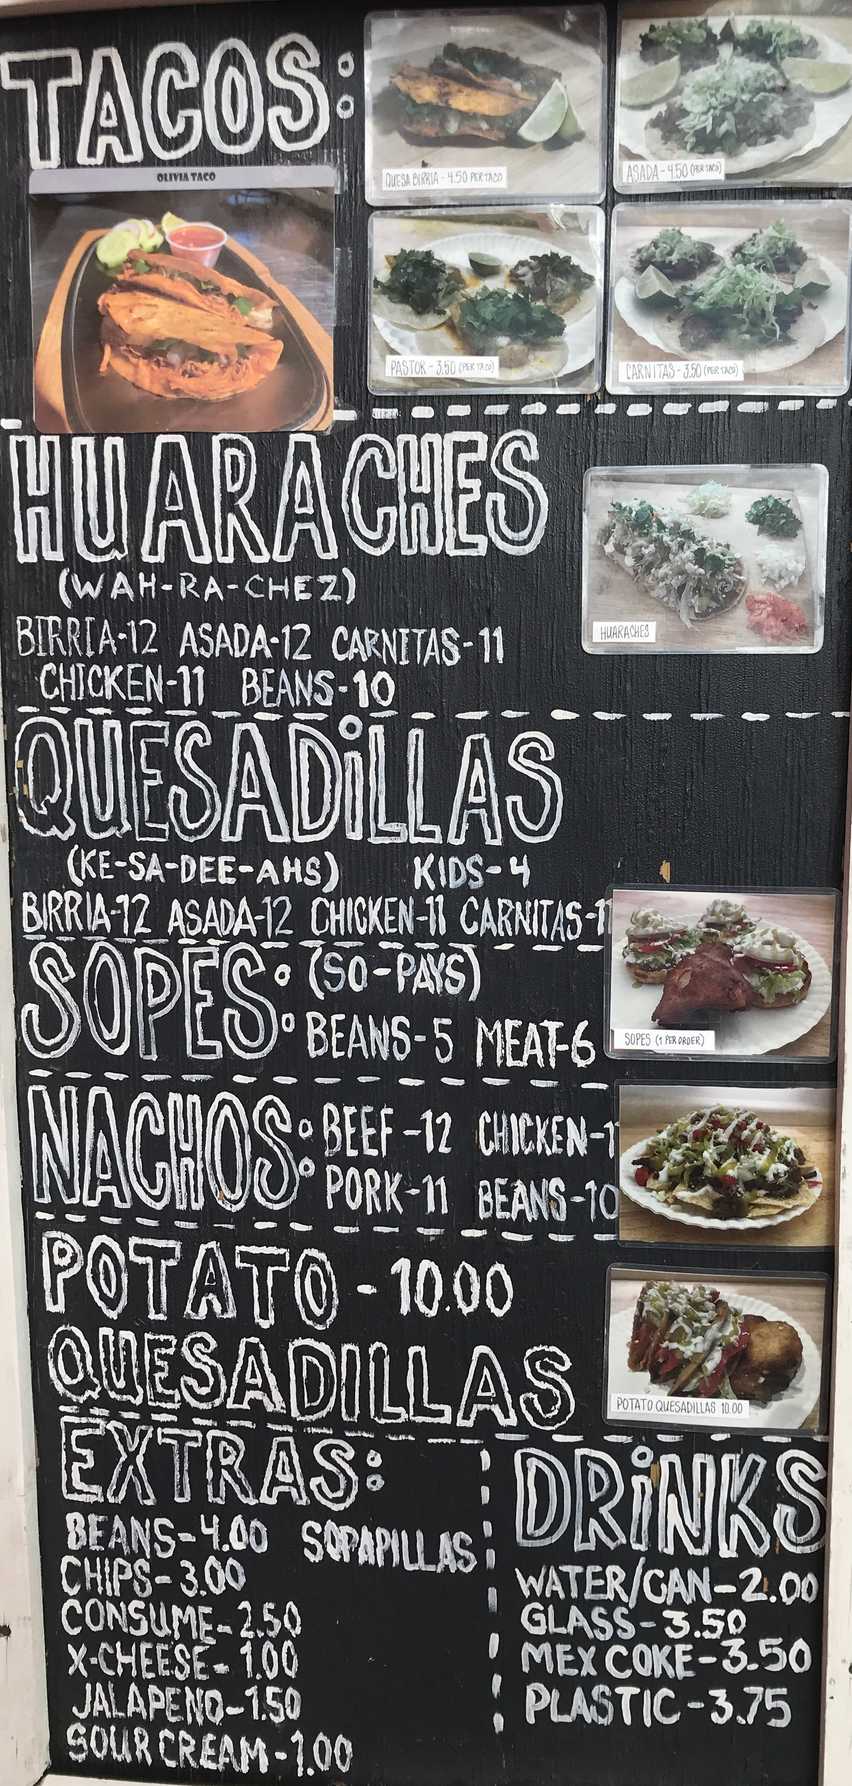 TACOS:
OLIVIA TACO
QUESA BIRRIA - 4.50 PER TACO
ASADA - 4.50 (PER TACO)
PASTOR - 3.50 (PER TACO)
CARNITAS - 3.50 (PER TACO)
HUARACHES
(WAH-RA-CHEZ)
HUARACHES
BIRRIA-12 ASADA-12 CARNITAS-11
CHICKEN-11 BEANS-10
QUESADiLLAS
(KE-SA-DEE-AHS) KIDS-4
BIRRIA-12 ASADA-12 CHICKEN-11 CARNITAS-11
SOPES: (SO-PAYS)
BEANS-5 MEAT-6
SOPES (1 PER ORDER)
NACHOS: BEEF-12 CHICKEN-1
PORK-11 BEANS-10
POTATO - 10.00
QUESADILLAS
POTATO QUESADILLAS 10.00
EXTRAS:
BEANS-4.00 SOPAPILLAS
CHIPS-3.00
CONSUME-2.50
X-CHEESE-1.00
JALAPENO-1.50
SOUR CREAM-1.00
DRiNKS
WATER/CAN-2.00
GLASS-3.50
MEX COKE-3.50
PLASTIC-3.75